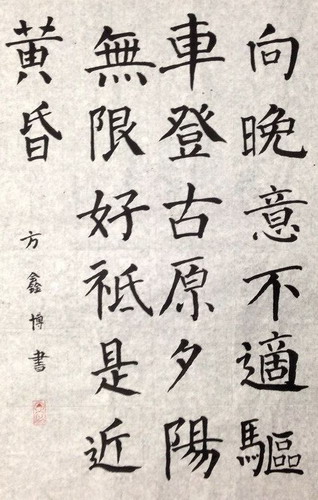 向晚意不適驅
車登古原夕陽
無限好祗是近
黄昏
方鑫博書